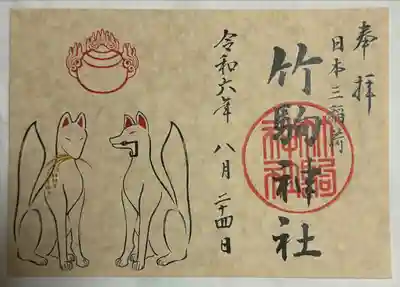 奉拝
日本三稲荷
竹駒神社
令和六年八月二十四日